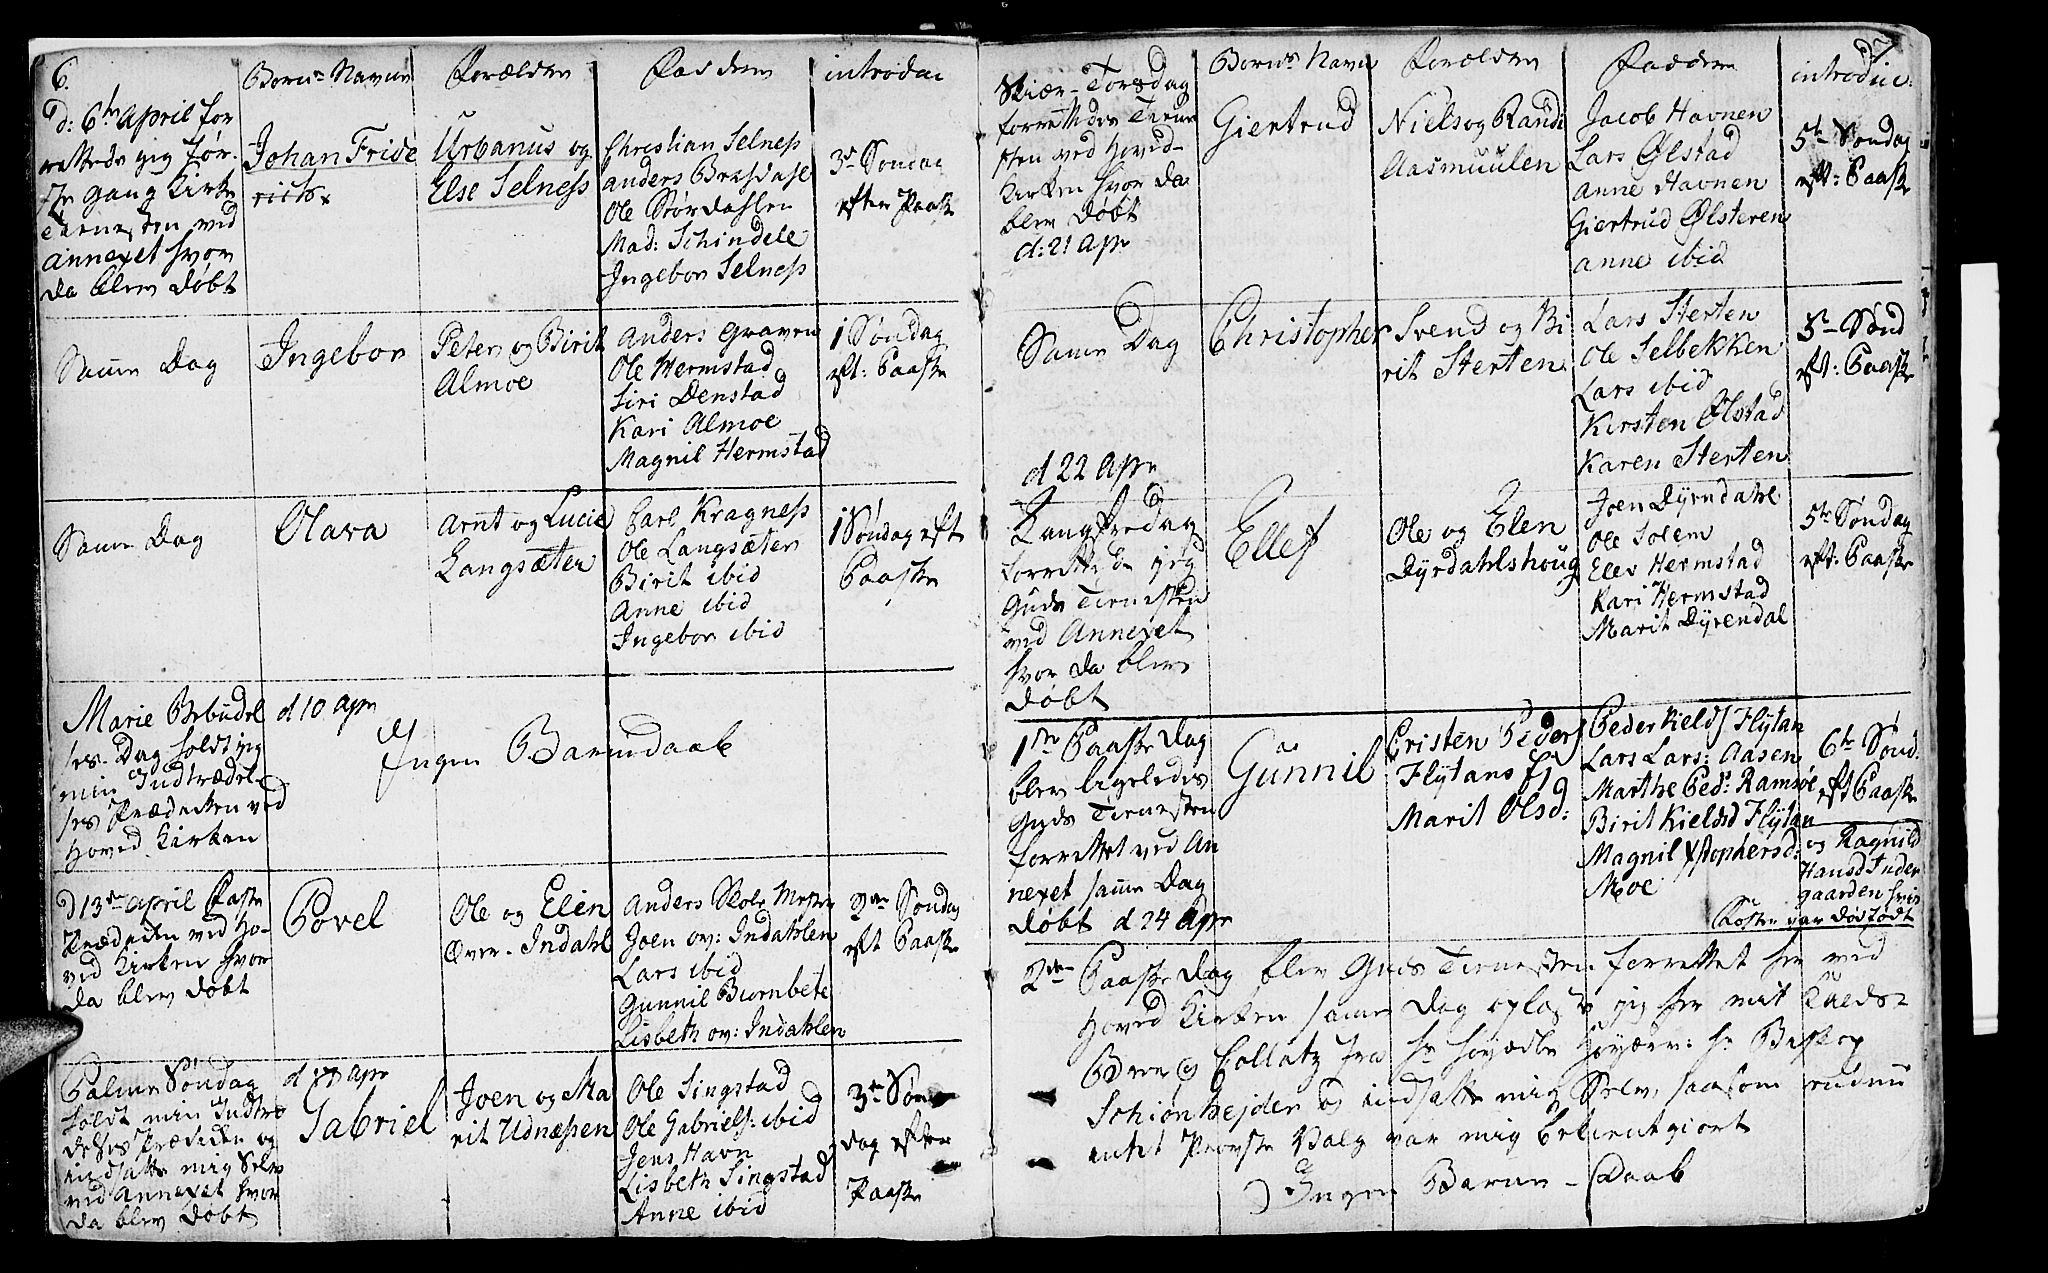 6.
Børns Navne
Forældre
Faddere
introduc
d: 6te April for
rettede jeg før-
ste gang Kirke
tienesten ved
annexet hvor
da blev døbt
Johan Fride
rich
Urbanus og
Else Selness
Christian Selness
Ole Størdahlen
Mad: Schindele
Ingebor Selness
3die Søndag
efter Paaske
Samme Dag
Ingebor
Peter og Birit
Almoe
Anders Graven
Ole Hermstad
Siri Denstad
Kari Almoe
Magnil Hermstad
1 Søndag
eft: Paaske
Samme Dag
Olava
Arnt og Lucie
Langsæter
Carl Kragness
Ole Langsæter
Birit ibid
Anne ibid
Ingebor ibid
1 Søndag eft
Paaske
Marie Bebudel
ses-Dag holdt jeg
min Indtrædel-
ses Prædiken ved
Hoved Kirken
d 10 Apr
Ingen Barnedaab
d 13de April Faste
Prædiken ved Ho-
ved Kirken hvor
da blev døbt
Povel
Ole og Elen
Over-Indahl
Anders Skole Mester
Joen ov: Indahlen
Lars ibid
Gunnil Burnbete
Lisbeth ov: Indahlen
2den Søndag
eft Paaske
Palme Søndag
holdt min Indtræ
delses Prædiken og
indsatte mig Selv
ved Annexet hvor
da blev døbt
d 17 Apr
Gabriel
Joen og Ma
rit Udnæssen
Ole Singstad
Ole Gabriels: ibid
Jens Havn
Lisbeth Singstad
Anne ibid
3die Søn
dag efter
Paaske
7
Børns Navn
Forældre
Faddere
introduc:
Skiær-Torsdag
forrettedes Tiene
sten ved Hoved-
Kirken hvor da
blev døbt
d: 21 Apr
Giertrud
Niels og Randi
Aasmuulen
Jacob Havnen
Lars Ølstad
Anne Havnen
Giertrud Ølsteren
Anne ibid
5te Søndag
eft: Paaske
Samme Dag
Christopher
Svend og Bi
rit Sterten
Lars Sterten
Ole Selbekken
Lars ibid
Kirsten Ølstad
Karen Sterten
5te Sønd
eft: Paaske
d 22 Apr
Langfredag
forrettede jeg
Guds Tienesten
ved Annexet
hvor da blev
døbt
Ellef
Ole og Elen
Dyrdahlshoug
Joen Dyrndahl
Ole Solem
Elev Hermstad
Kari Hermstad
Marit Dyrendal
5te Søndag
eft: Paaske
1ste Paaske Dag
blev ligeledes
Guds Tienesten
forrettet ved An
nexet samme Dag
døbt d 24 Apr
Gunnil
Cristen Peders
Flÿtans og
Marit Olsd:
Peder Kields Flÿtan
Lars Lars: Aasen
Marthe Ped: Ramsøe
Birit Kieldsd Flÿtan
Magnil Xstophersd:
Moe
6te Sønd.
eft Paaske
og Ragnild
Hansd Inder
gaarden hvis
Foster var dødfødt
2den Paaske Dag blev Guds Tienesten forrettet her ved
Hoved Kirken samme Dag oplæste jeg her mit Kalds-
Brev og Collatz fra hr høyædle Høyærv: hr Biskop
Schiønhejder og indsatte mig Selv, saasom
intet Provste Valg var mig bekientgiort
Ingen Barne-Daab